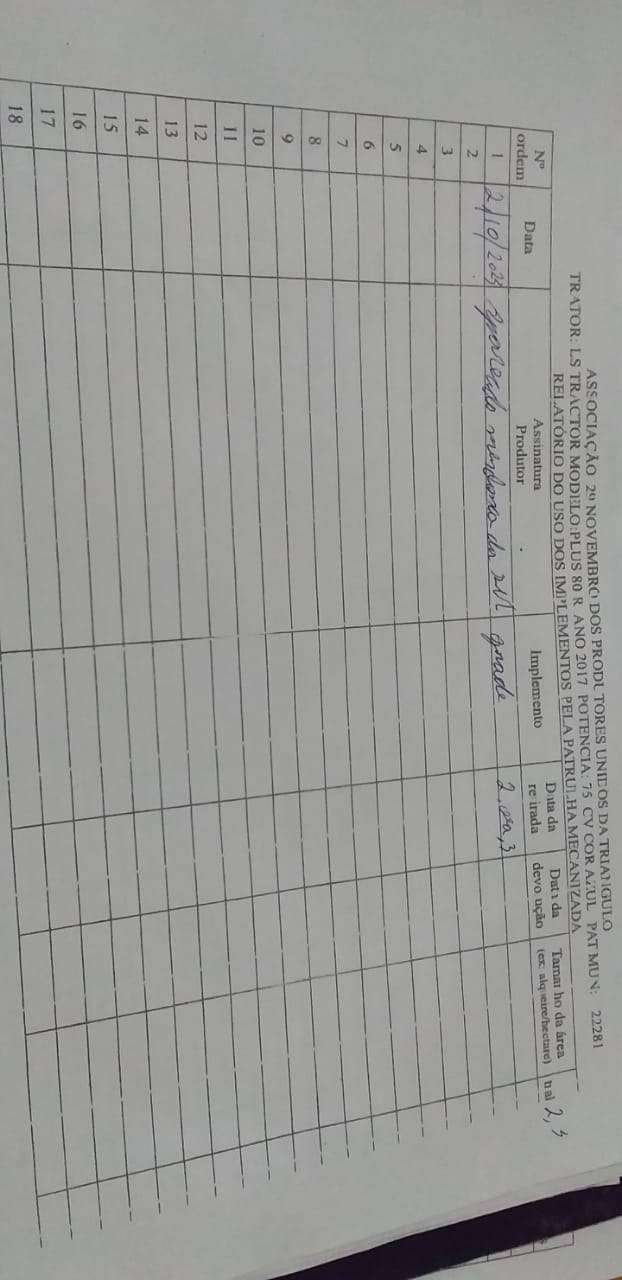 ASSOCIAÇÃO 29 NOVEMBRO DOS PRODUTORES UNIDOS DA TRIANGULO
TRATOR: LS TRACTOR MODELO:PLUS 80 R ANO 2017 POTENCIA: 75 CV COR AZUL PAT MUN: 22281
RELATÓRIO DO USO DOS IMPLEMENTOS PELA PATRULHA MECANIZADA
Nº ordem Data Assinatura Produtor Implemento Data da retirada Data da devolução Tamanho da área (ex: alqueire/hectare) 2,3
1 grade
2
3
4
5
6
7
8
9
10
11
12
13
14
15
16
17
18